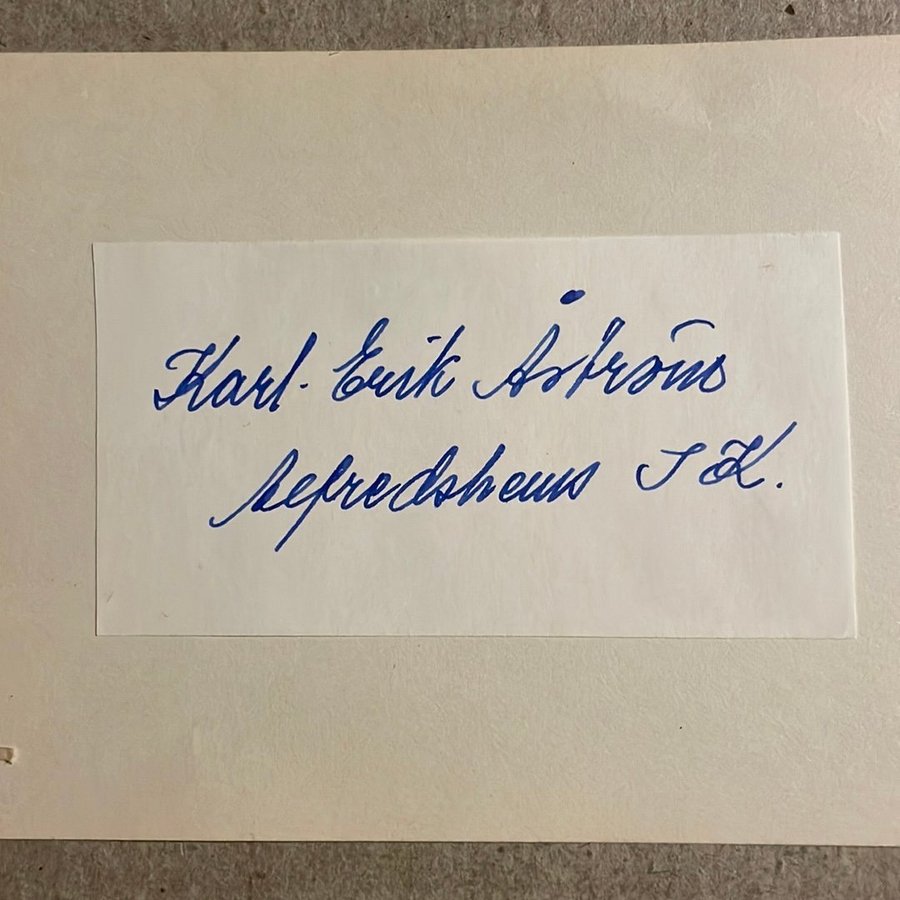 Karl-Erik Åström
Alfredshems I K.